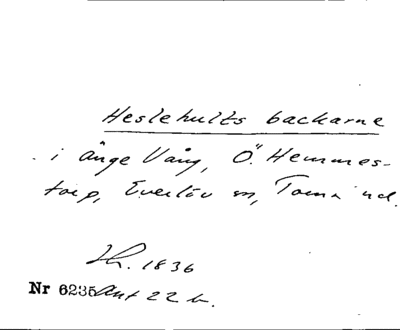 Heslehults backarne
i Änge Vång, Ö. Hemmes-
torp, Everlöv sn, Torna hd.
Lh. 1836
Nr 6235 Akt 22 b.